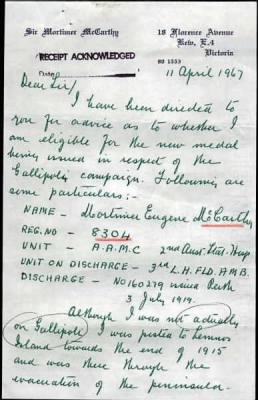 Sir Mortimer McCarthy
18 Florence Avenue
Kew, E.4
Victoria
80 1553
RECEIPT ACKNOWLEDGED
11 April 1967
Dear Sir/
I have been directed to
you for advice as to whether I
am eligible for the new medal
being issued in respect of the
Gallipoli campaign. Following are
some particulars:-
NAME - Mortimer Eugene McCarthy
REG. NO - 8304
UNIT - A.A.M.C 2nd Aust. Stat. Hosp
UNIT ON DISCHARGE - 3rd L.H. FLD. AMB.
DISCHARGE - No 160279 issued Perth
3 July 1919.
Although I was not actually
on Gallipoli I was posted to Lemnos
Island towards the end of 1915
and was there through the
evacuation of the peninsular.